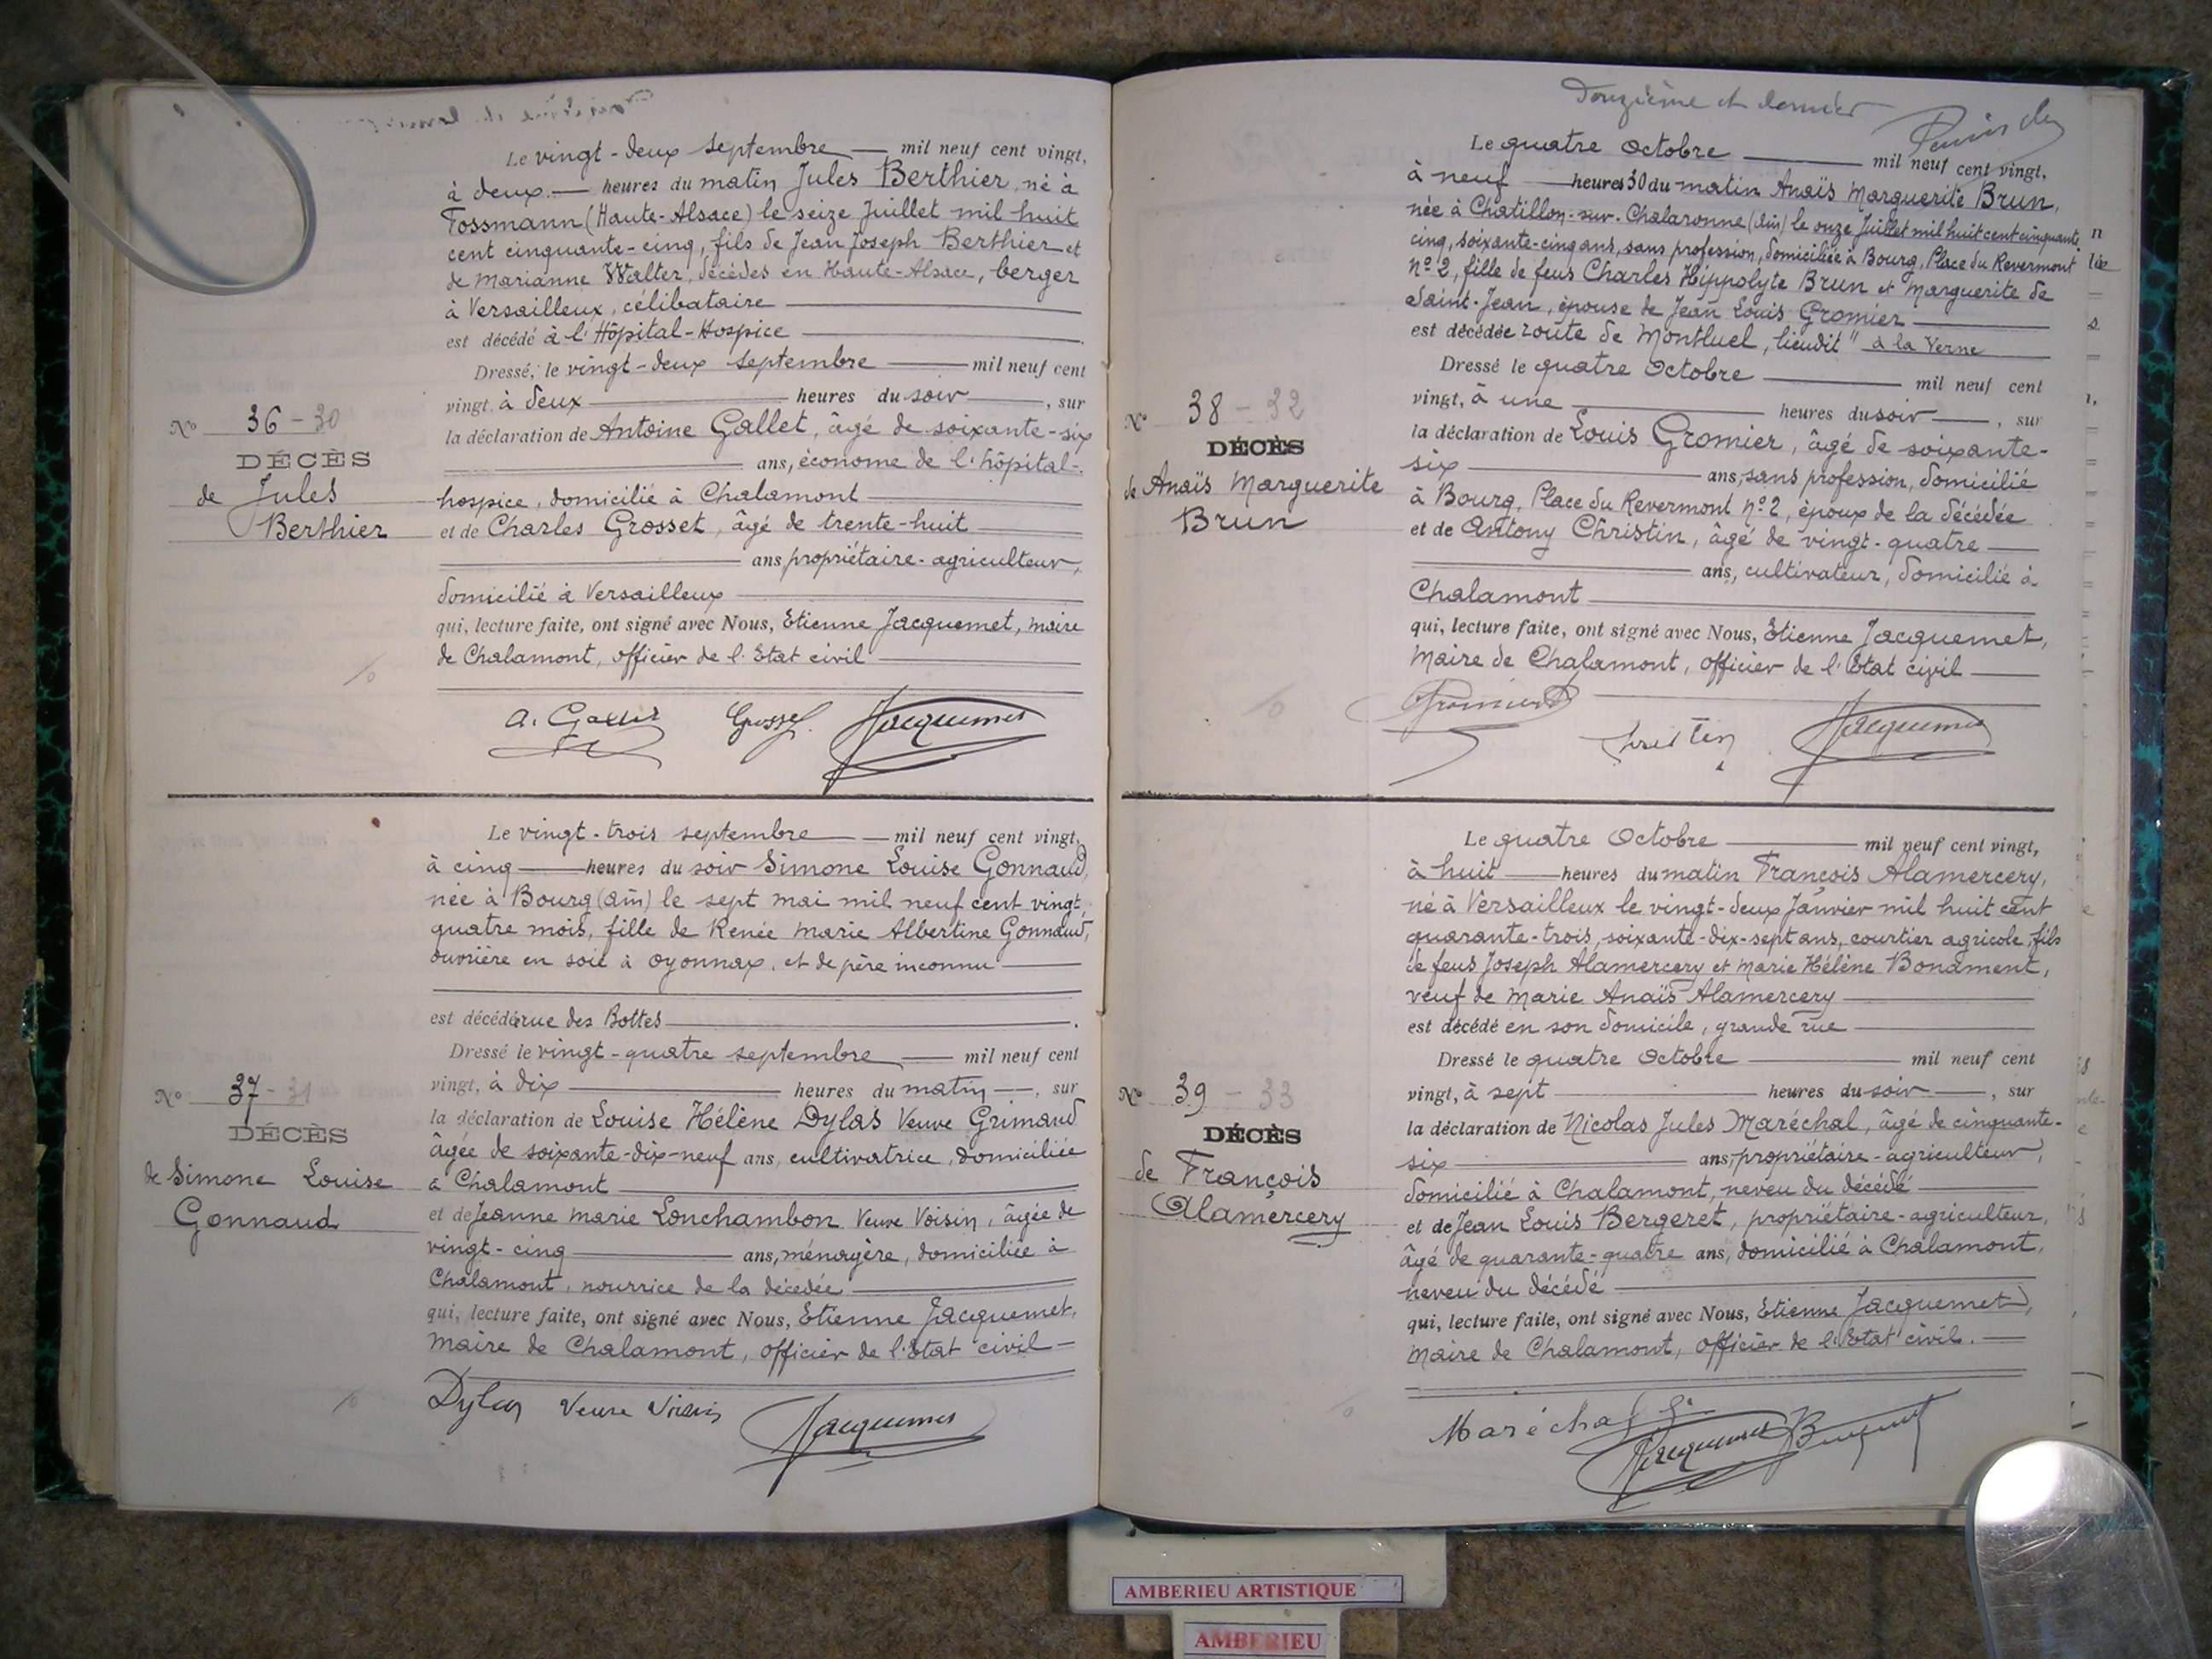 Le vingt-deux septembre mil neuf cent vingt,
à deux heures du matin Jules Berthier, né à
Fossmann (Haute-Alsace) le seize Juillet mil huit
cent cinquante-cinq, fils de Jean Joseph Berthier et
de Marianne Walter, décédés en Haute-Alsace, berger
à Versailleux, célibataire
est décédé à l'Hôpital-Hospice
Dressé, le vingt-deux septembre mil neuf cent
vingt, à deux heures du soir, sur
la déclaration de Antoine Gallet, âgé de soixante-six
ans, économe de l'hôpital-
hospice, domicilié à Chalamont
et de Charles Grosset, âgé de trente-huit
ans, propriétaire-agriculteur,
domicilié à Versailleux
qui, lecture faite, ont signé avec Nous, Etienne Jacquemet, maire
de Chalamont, officier de l'Etat civil
Nº 36 - 30
DÉCÈS
de Jules
Berthier
A. Gallet Grosset Jacquemet
Le vingt-trois septembre mil neuf cent vingt,
à cinq heures du soir Simone Louise Gonnaud,
née à Bourg (Ain) le sept mai mil neuf cent vingt,
quatre mois, fille de Renée Marie Albertine Gonnaud,
ouvrière en soie à Oyonnax, et de père inconnu
est décédée rue des Bottes
Dressé le vingt-quatre septembre mil neuf cent
vingt, à dix heures du matin, sur
la déclaration de Louise Hélène Dylas Veuve Grimaud
âgée de soixante-dix-neuf ans, cultivatrice, domiciliée
à Chalamont
et de Jeanne Marie Lonchambon Veuve Voisin, âgée de
vingt-cinq ans, ménagère, domiciliée à
Chalamont, nourrice de la décédée
qui, lecture faite, ont signé avec Nous, Etienne Jacquemet,
Maire de Chalamont, officier de l'Etat civil
Nº 37 - 31
DÉCÈS
de Simone Louise
Gonnaud
Dylas Veuve Voisin Jacquemet
Douzième et dernier
Le quatre Octobre mil neuf cent vingt,
à neuf heures 30 du matin Anaïs Marguerite Brun,
née à Chatillon-sur-Chalaronne (Ain) le onze Juillet mil huit cent cinquante
cinq, soixante-cinq ans, sans profession, domiciliée à Bourg, Place du Revermont
nº 2, fille de feus Charles Hippolyte Brun et Marguerite de
Saint-Jean, épouse de Jean Louis Gromier
est décédée route de Montluel, lieudit "à la Verne
Dressé le quatre Octobre mil neuf cent
vingt, à une heures du soir, sur
la déclaration de Louis Gromier, âgé de soixante-
six ans, sans profession, domicilié
à Bourg, Place du Revermont nº 2, époux de la décédée
et de Antony Christin, âgé de vingt-quatre
ans, cultivateur, domicilié à
Chalamont
qui, lecture faite, ont signé avec Nous, Etienne Jacquemet,
Maire de Chalamont, officier de l'Etat civil
Nº 38 - 32
DÉCÈS
de Anaïs Marguerite
Brun
Gromier Christin Jacquemet
Le quatre Octobre mil neuf cent vingt,
à huit heures du matin François Alamercery,
né à Versailleux le vingt-deux Janvier mil huit cent
quarante-trois, soixante-dix-sept ans, courtier agricole, fils
de feus Joseph Alamercery et Marie Hélène Bonament,
veuf de Marie Anaïs Alamercery
est décédé en son domicile, grande rue
Dressé le quatre Octobre mil neuf cent
vingt, à sept heures du soir, sur
la déclaration de Nicolas Jules Maréchal, âgé de cinquante-
six ans, propriétaire-agriculteur,
domicilié à Chalamont, neveu du décédé
et de Jean Louis Bergeret, propriétaire-agriculteur,
âgé de quarante-quatre ans, domicilié à Chalamont,
neveu du décédé
qui, lecture faite, ont signé avec Nous, Etienne Jacquemet,
Maire de Chalamont, officier de l'Etat civil.
Nº 39 - 33
DÉCÈS
de François
Alamercery
Maréchal Jacquemet Bergeret
AMBERIEU ARTISTIQUE
AMBERIEU